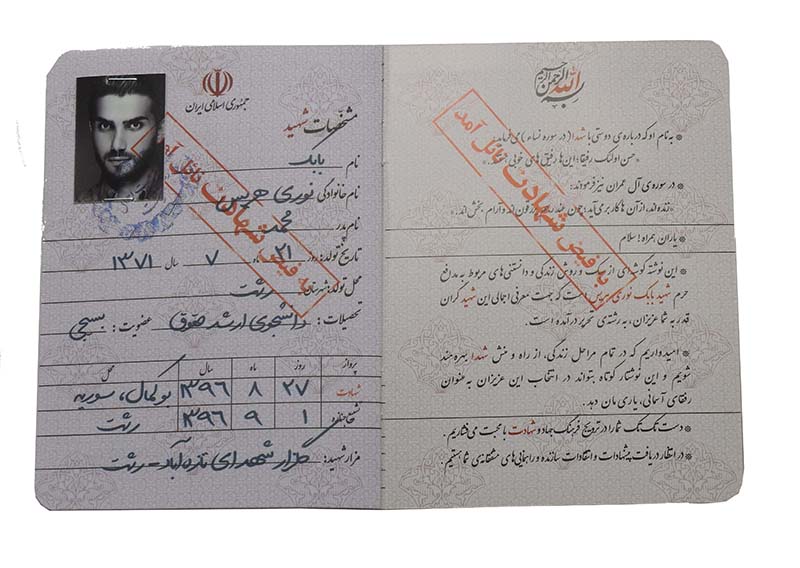 جمهوری اسلامی ایران
مشخصات شهید
نام بابک
نام خانوادگی نوری هریس
نام پدر محمد
تاریخ تولد: روز ۲۱ ماه ۷ سال ۱۳۷۱
محل تولد: شهرستان رشت
تحصیلات: دانشجوی ارشد حقوق عضویت: بسیجی
پرواز روز ماه سال محل
شهادت ۲۷ ۸ ۱۳۹۶ بوکمال، سوریه
تشیع جنازه ۱ ۹ ۱۳۹۶ رشت
مزار شهید: گلزار شهدای تازه آباد - رشت
به فیض شهادت نائل آمد
بسم الله الرحمن الرحیم
* به نام او که درباره‌ی دوستی با شهدا (در سوره نساء) می‌فرماید:
«حسن اولئک رفیقا؛ این‌ها رفیق‌های خوبی هستند.»
* در سوره‌ی آل عمران نیز فرمودند:
«زنده‌اند، از آن‌ها کار بری‌آید؛ چون عند ربهم یرزقون‌اند و آرام بخش‌اند.»
* یاران همراه! سلام
* این نوشته گوشه‌ای از سبک و روش زندگی و دانستنی‌های مربوط به مدافع
حرم شهید بابک نوری هریس است که جهت معرفی اجمالی این شهید گران
قدر به شما عزیزان، به رشته‌ی تحریر درآمده است.
* امیدواریم که در تمام مراحل زندگی، از راه و منش شهدا بهره‌مند
شویم و این نوشتار کوتاه بتواند در انتخاب این عزیزان به‌عنوان
رفقای آسمانی، یاری‌مان دهد.
* دست تک تک شما را در ترویج فرهنگ جهاد و شهادت با محبت می‌فشاریم.
* در انتظار دریافت پیشنهادات و انتقادات سازنده و راهنمایی‌های مشفقانه‌ی شما هستیم.
به فیض شهادت نائل آمد